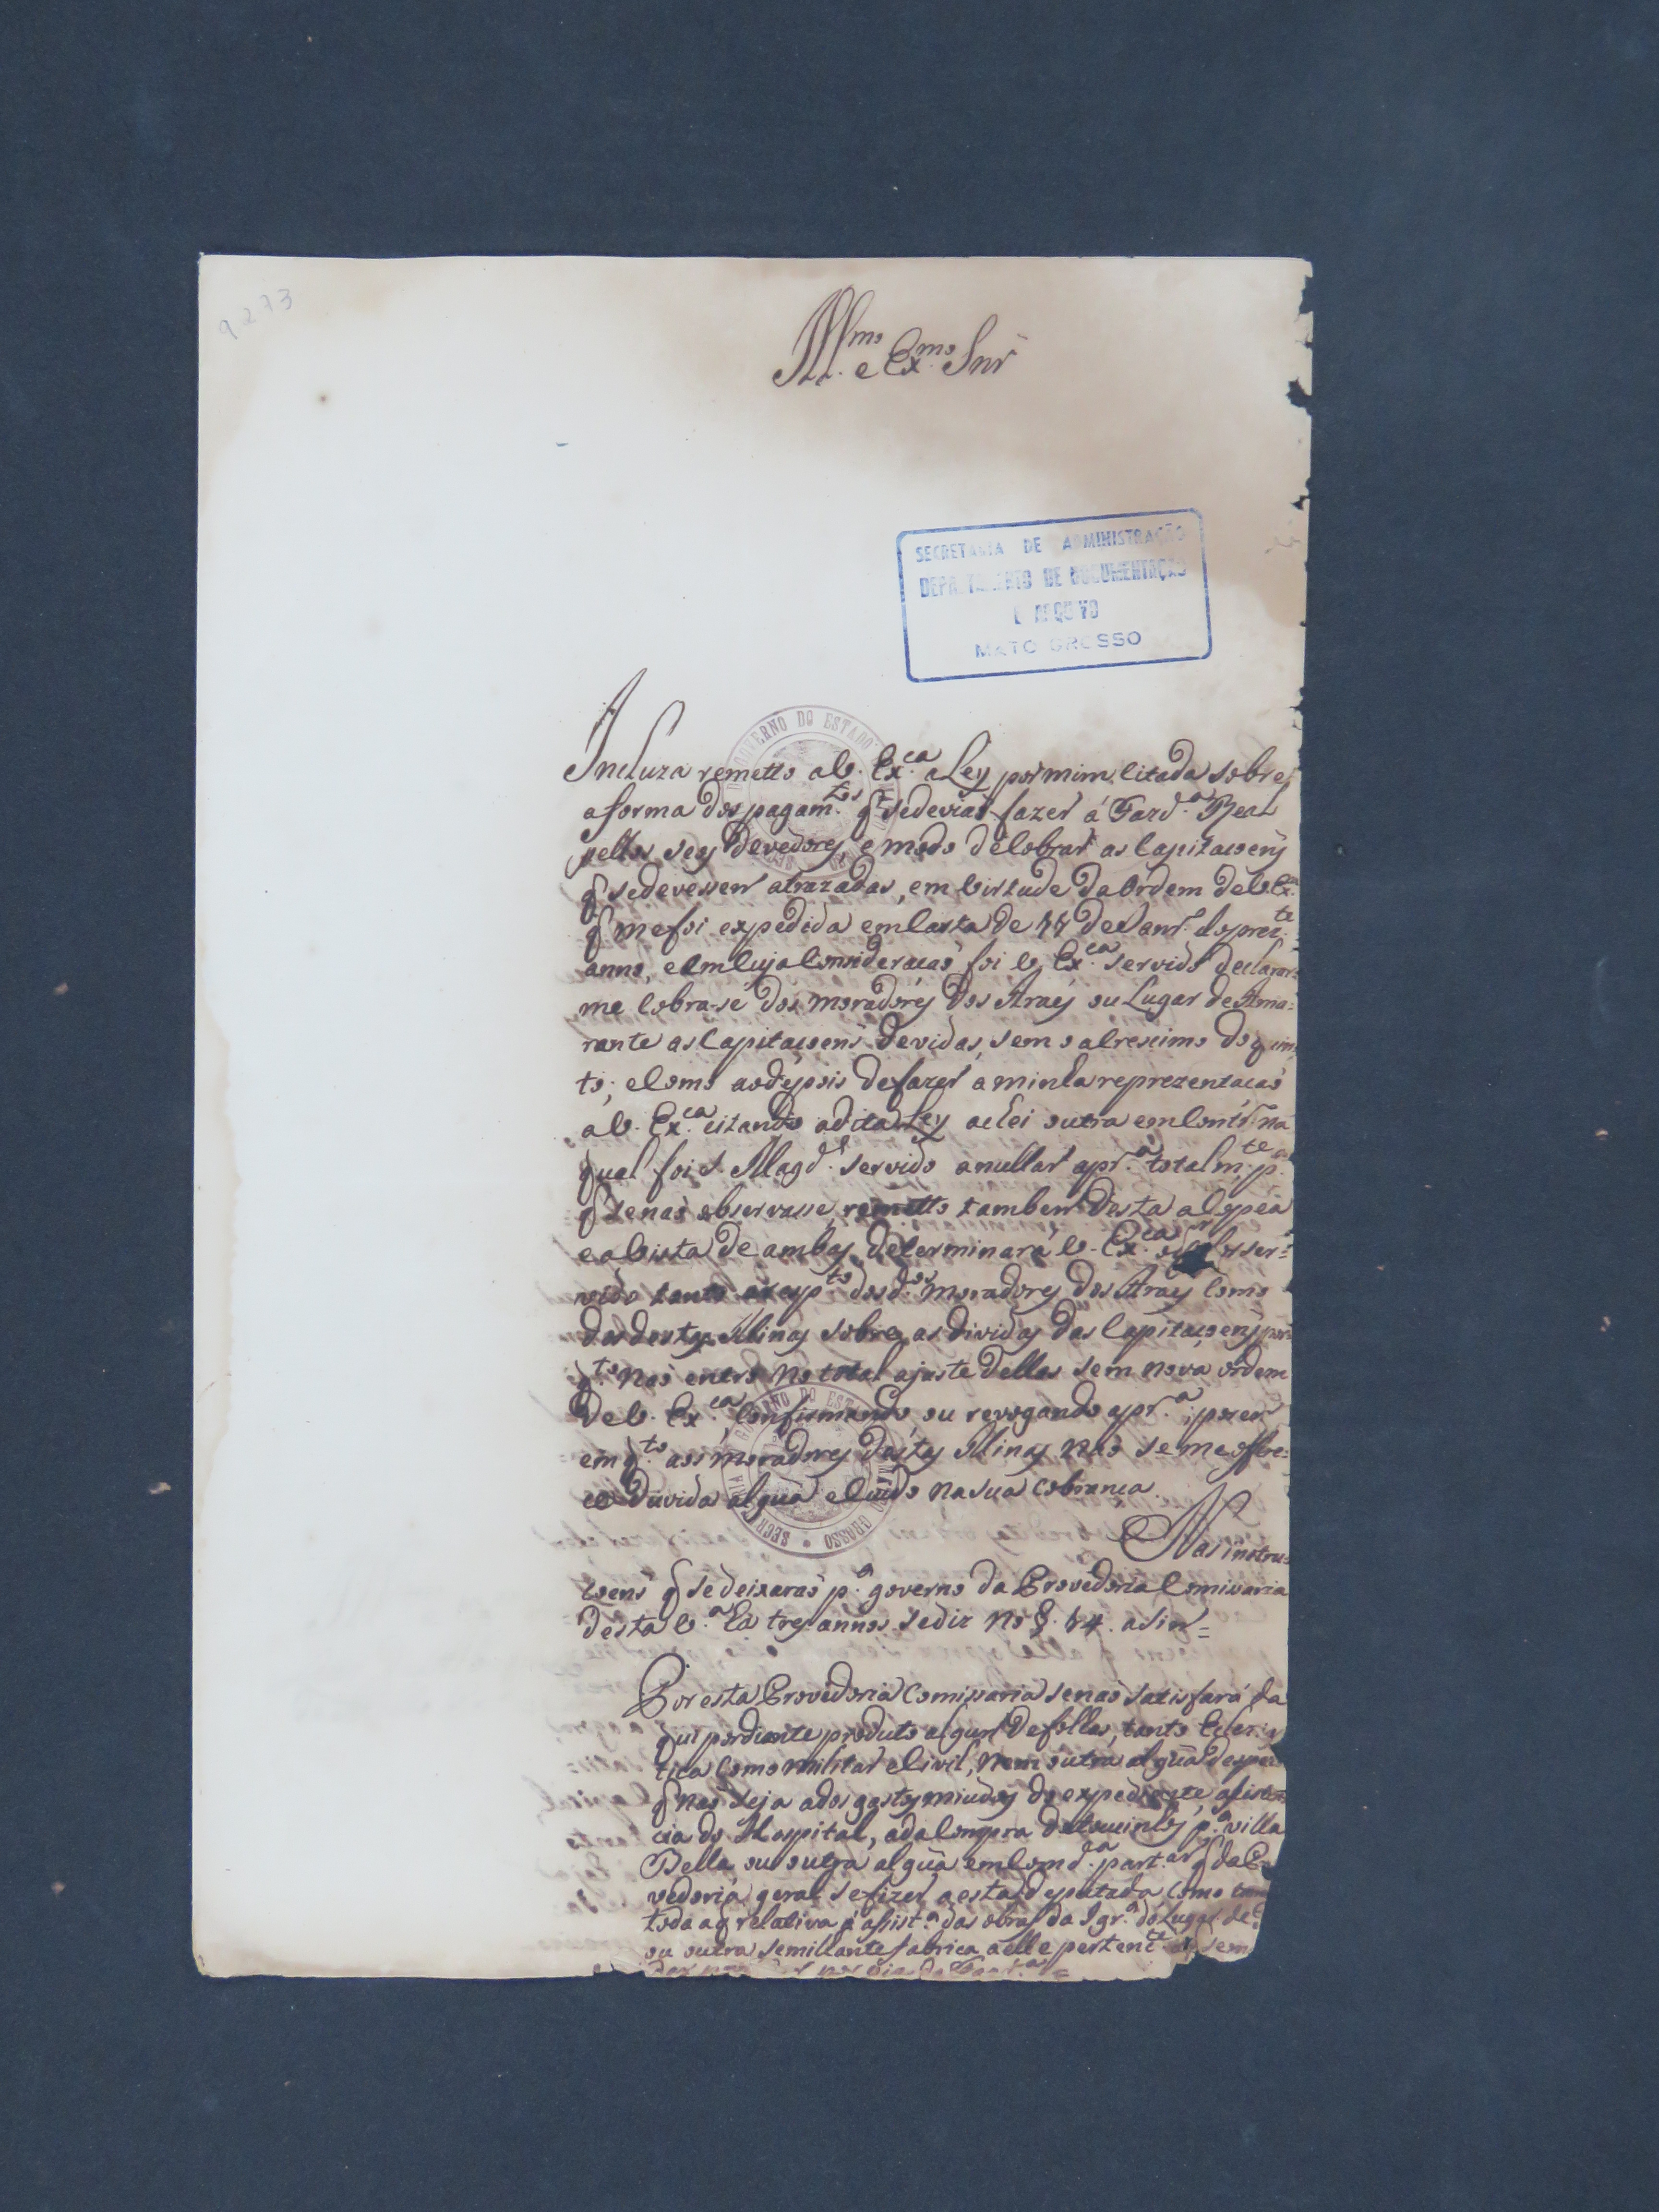 9273
Ill.mo e Ex.mo Snr
SECRETARIA DE ADMINISTRAÇÃO
DEPARTAMENTO DE DOCUMENTAÇÃO
E ARQUIVO
MATO GROSSO
Incluza remetto a V. Ex.ca a Ley por mim citada sobre
a forma dos pagam.tos q̃ se deviaõ fazer á Fazd.a Real
pellos seus devedores, e modo de Cobrar as Capitaçoens
q̃ se devessem atrazadas, em virtude da Ordem de V. Ex.ca
q̃ me foi expedida em Carta de 17 de Janr.o do prez.te
anno, e em cuja Consideraçaõ foi V. Ex.ca servido declarar-
me Cobra-se dos moradores dos Araés ou Lugar de Ama-
rante as Capitaçoens devidas, sem o acrescimo do quin
to; e Como ao depois de fazer a minha reprezentaçaõ
a V. Ex.ca citando a dita Ley achei outra em Contr.o na
qual foi S. Magd.e servido anullar a pr.a totalm.te p.a
q̃ se naõ observasse, remetto tambem desta a Copea
e a vista de ambas determinará V. Ex.ca o for ser-
vido tanto a resp.to dos d.os moradores dos Araes Como
dos destas Minas sobre as dividas das Capitaçoens por
q.to naõ entro no total ajuste dellas sem nova ordem
de V. Ex.ca Confirmando ou revogando a pr.a; porem
em q.to aos moradores destas Minas naõ se me offre-
ce duvida algũa e cuido na sua Cobrança.
Nas instru-
çoens q̃ se deixaraõ p.a governo da Provedoria Comissaria
desta V.a há tres annos se diz no §. 14. asim =
Por esta Provedoria Comissaria se naõ satisfará da
qui por diante producto algum de folhas, tanto Ecler
tica Como militar e Civil, nem outra algũa despe
q̃ naõ seja a dos gastos miudos do expediente, asisten
cia do Hospital, a da Compra de toucinhos p.a villa
Bella ou outra algũa em Comd.a part.ar q̃ da P
vedoria geral se fizer a esta deputada, Como
toda a q̃ relativa á asist.a das obras da Igr.a do Lugar de
ou outra semilhante fabrica a elle pertenc.te sem